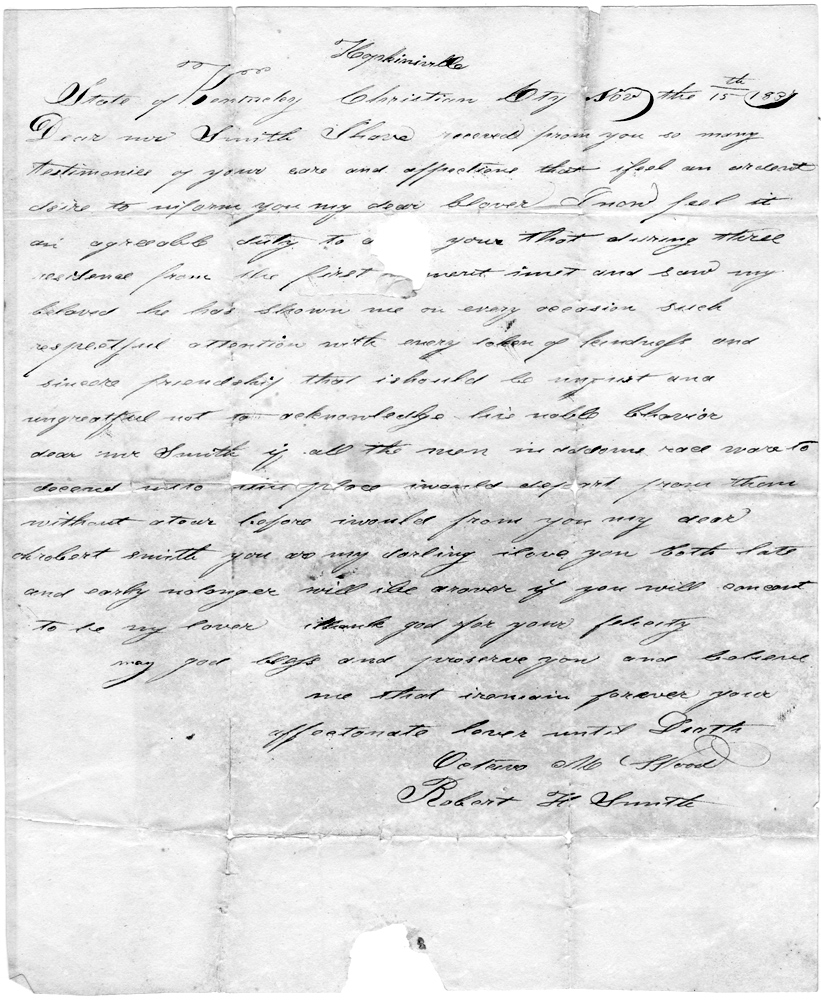 Hopkinsville
State of Kentuckey Christian Cty Nov the 15th 183
Dear mr Smith I have receved from you so many
testimonies of your care and affections that ifeel an ardent
desire to inform you my dear blover I now feel it
an agreable duty to a your that during three
residence from the first moment imet and saw my
beloved he has shown me on every occasion such
respectful attention with every token of kindness and
sincere friendship that ishould be unjust and
ungreatful not to acknowledge his noble bhavior
dear mr Smith if all the men in addoms race ware to
decend into this place iwould depart from them
without atear before iwould from you my dear
robert smith you ar my darling ilove you both late
and early nolonger will ibe arover if you will concent
to be my lover ithank god for your felicity
may god bless and preserve you and believe
me that iremain forever your
affectonate lover until Death
Octavo M Wood
Robert H Smith